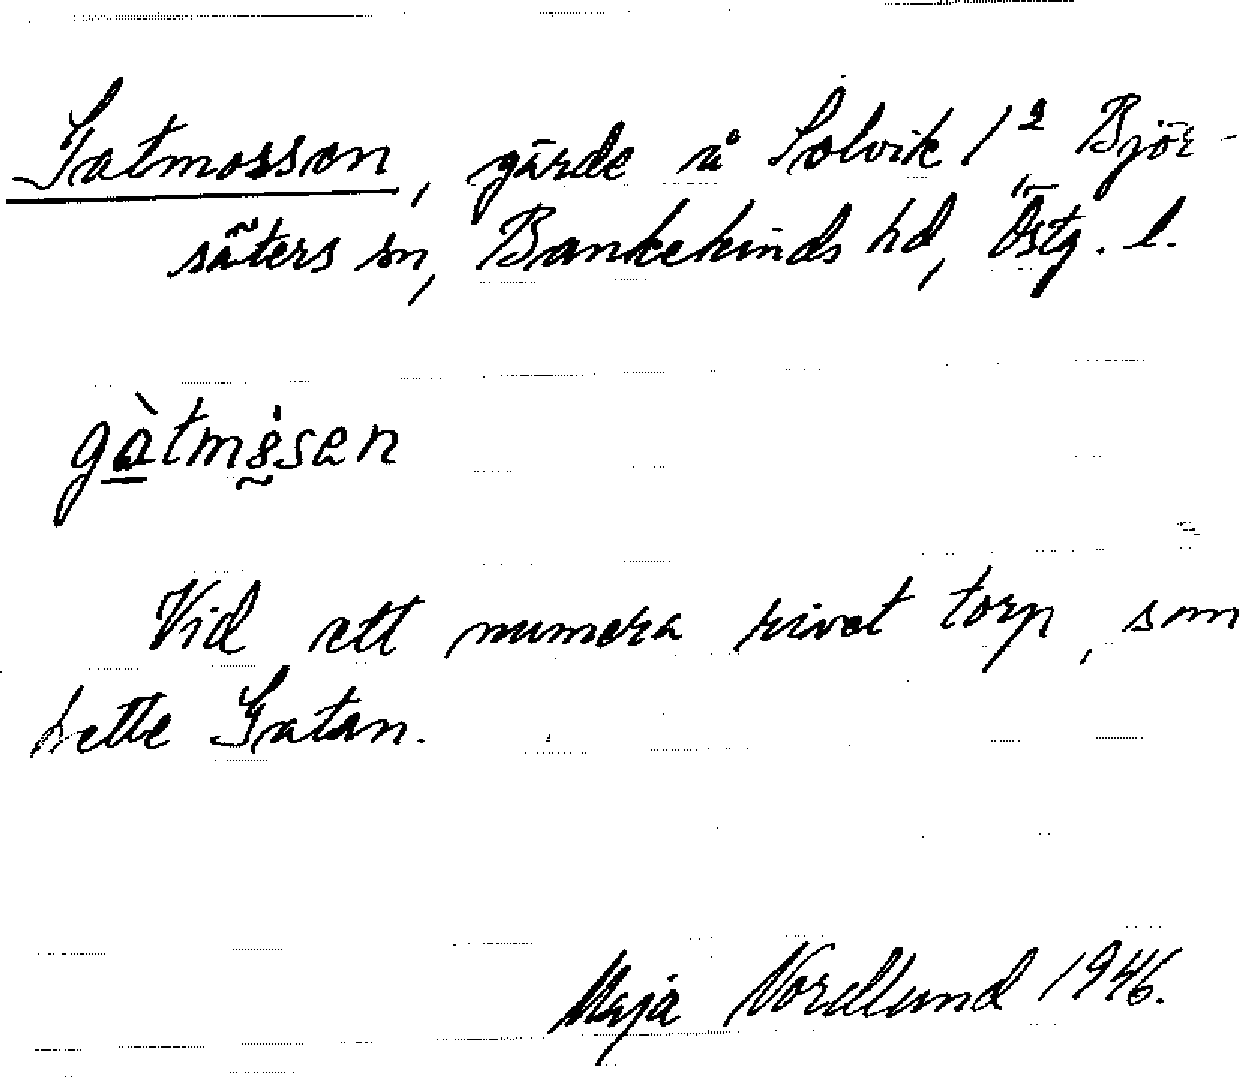 Gatmossen, gärde å Solvik 1² Björ-
säters sn, Bankekinds hd, Östg. l.
gàtmòsen
Vid ett numera rivet torp, som
hette Gatan.
Maja Nordlund 1946.